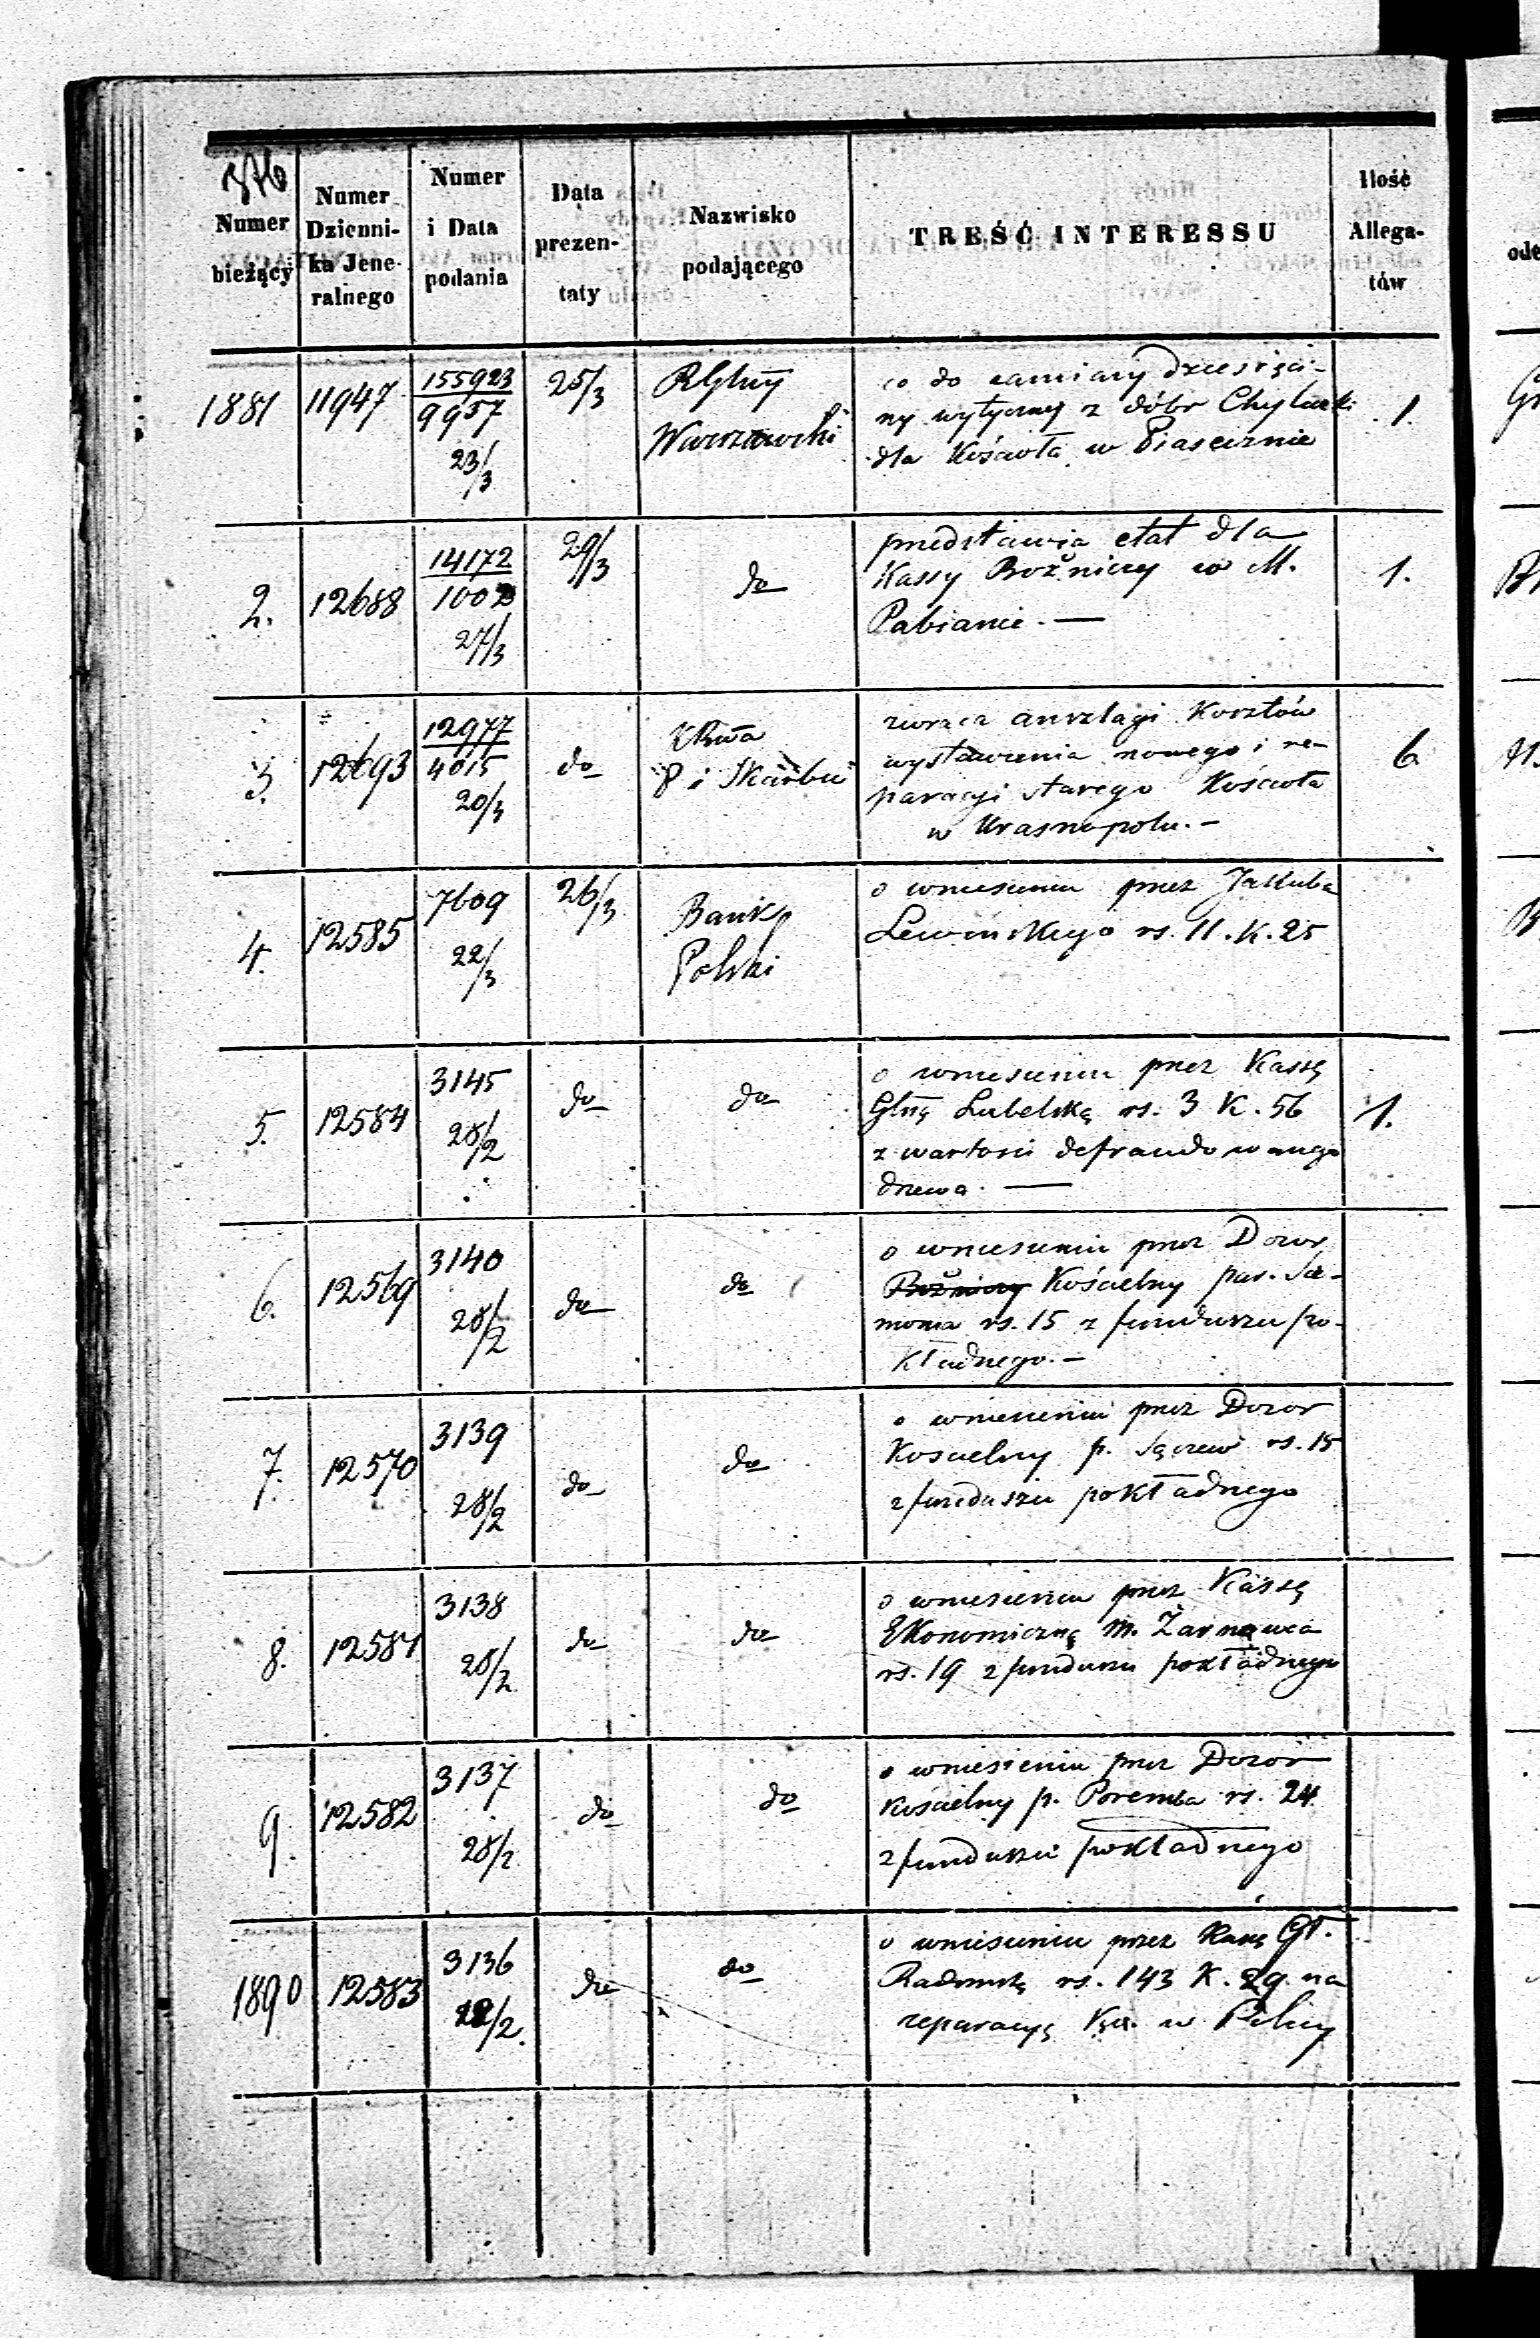 376
Numer bieżący
Numer Dzienni- ka Jene- ralnego
Numer i Data podania
Data prezen- taty
Nazwisko podającego
TREŚĆ INTERESSU
Ilość Allega- tów
1881 11947 155923 25/3 RGlny co do zamiany dziesięci-
9957 Warszawski ny wytycznej z dóbr Chyliczki 1.
23/3 dla Kościoła w Piasecznie
2. 12688 14172 29/3 do przedstawia etat dla
1002 Kassy Bożniczy w M. 1.
27/3 Pabianic. —
3. 12693 12977 do KRwa zwraca anszlagi Kosztów
4015 P i Skarbu wystawienia nowego i re- 6
20/3 paracyi starego Kościoła
w Krasnopolu. -
4. 12585 7609 26/3 Bank o wniesieniu przez Jakuba
22/3 Polski Lewińskiego rs. 11. k. 25
5. 12584 3145 do do o wniesieniu przez Kassę
28/2 Glną Lubelską rs. 3 K. 56 1.
z wartości defraudowanego
drzewa. —
6. 12569 3140 do do o wniesieniu przez Dozor
28/2 Bożniczy Kościelny par.
rs. 15 z funduszu po-
kładnego. -
7. 12570 3139 do do o wniesieniu przez Dozor
28/2 Koscielny p. rs. 15
z funduszu pokładnego
8. 12581 3138 do do o wniesieniu przez Kassę
28/2 Ekonomiczną m. Żarnowca
rs. 19 z funduszu pokładnego
9. 12582 3137 do do o wniesieniu przez Dozór
28/2 Kościelny p. Poremba rs. 24
z funduszu pokładnego
1890 12583 3136 do do o wniesieniu przez Kasę Gł.
28/2. Radomską rs. 143 K. 29. na
reparacyę w Pilicy